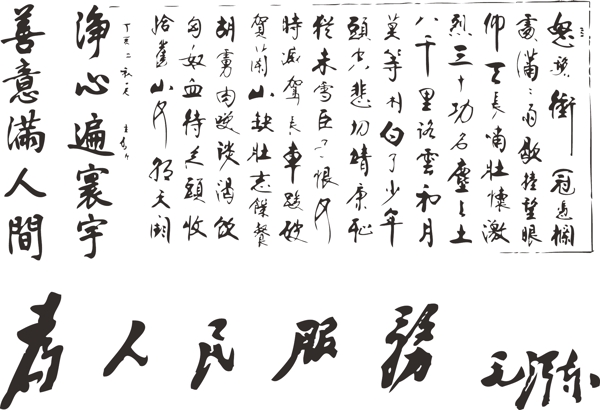 怒髮衝冠憑欄
處瀟瀟雨歇擡望眼
仰天長嘯壯懷激
烈三十功名塵与土
八千里路雲和月
莫等閑白了少年
頭空悲切靖康恥
猶未雪臣子恨何
時滅駕長車踏破
賀蘭山缺壯志饑餐
胡虜肉笑談渴飲
匈奴血待從頭收
拾舊山河朝天闕
淨心遍寰宇
善意滿人間
為人民服務
毛澤东